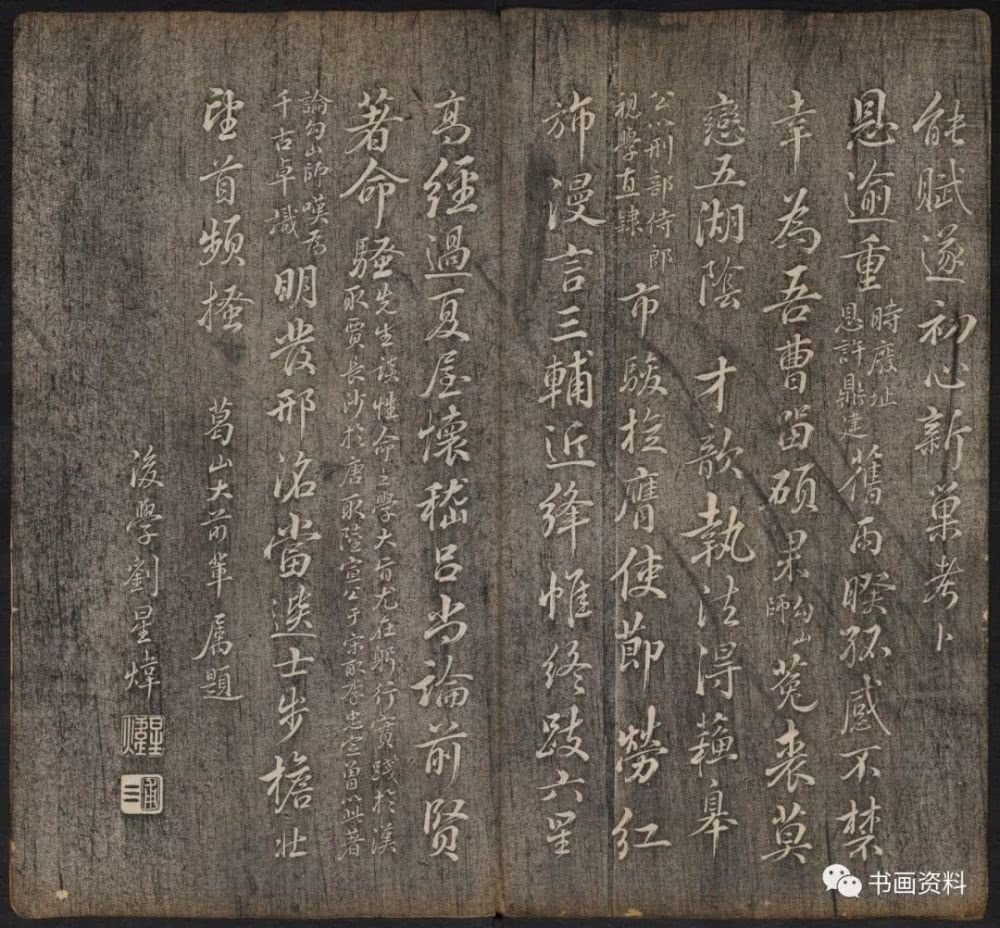 能賦遂初心新巢考卜
恩逾重
時廢址
恩許鼎建
舊雨睽孤感不禁
幸為吾曹留碩果
勾山
師
菟裘莫
戀五湖陰 才歆執法得蘇皋
公以刑部侍郎
視學直隸
市駿於膺使節勞紅
旆漫言三輔近絳帷終跂六星
高經過夏屋懷嵇呂尚論前賢
著命騷
先生談性命之學大旨尤在躬行實踐於漢
取賈長沙於唐取陸宣公于宋取李忠定曾以此著
論勾山師嘆為
千古卓識
明發邢洺當送士步檐壯
望首頻搔
葛山大前輩屬題
後學劉星煒
星煒
圃三
书画资料